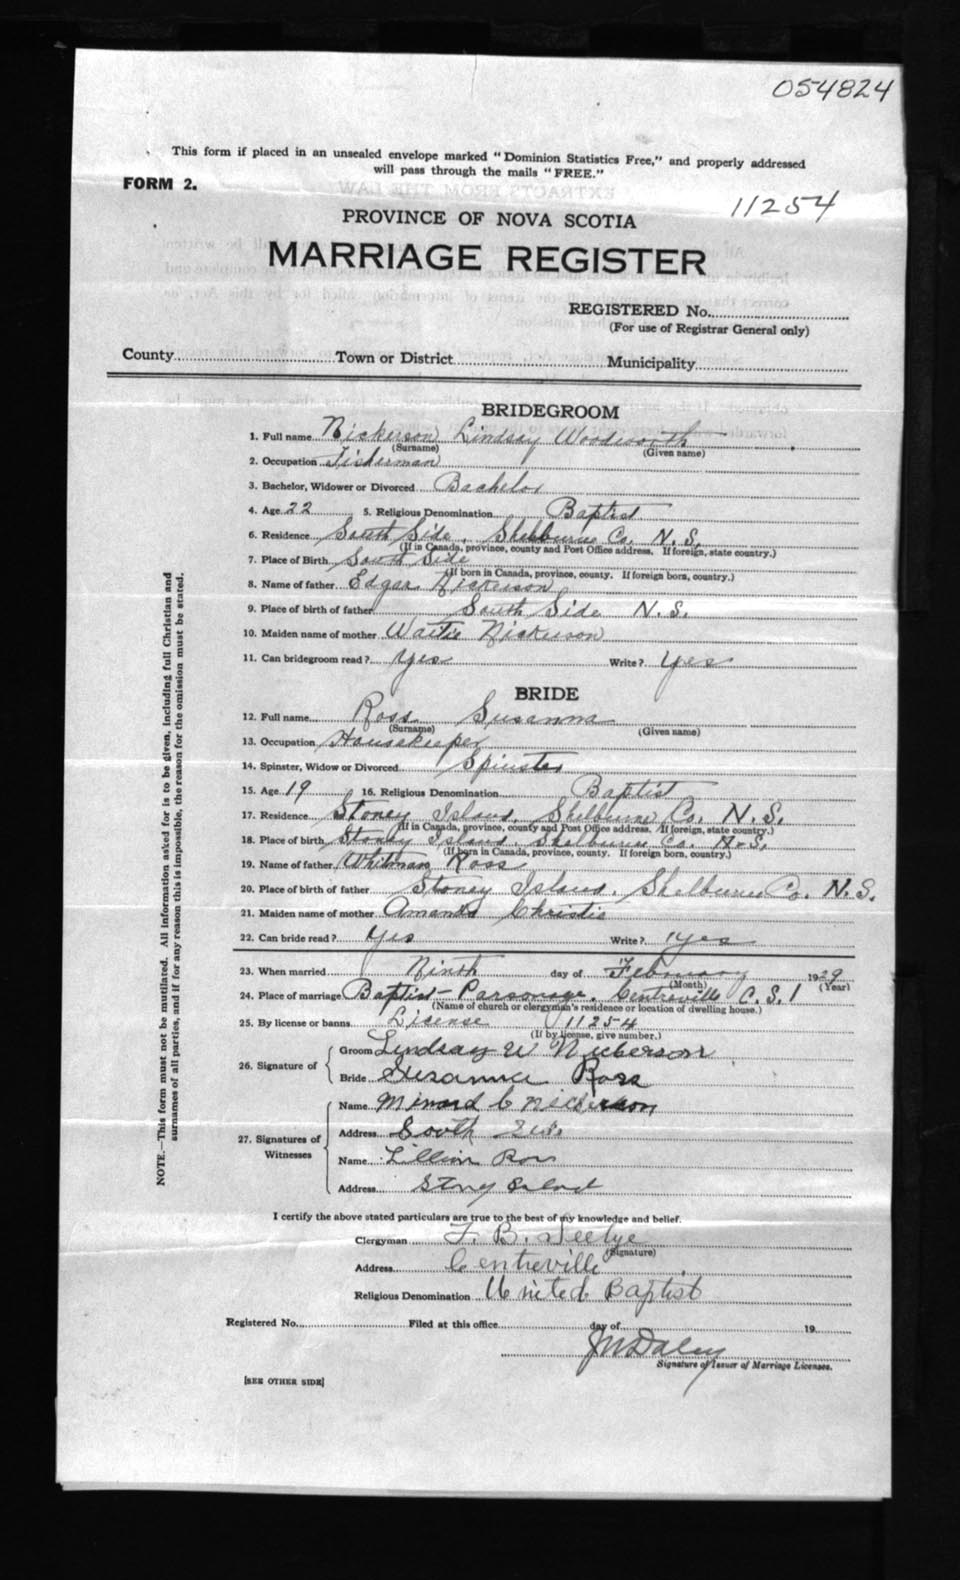 054824
This form if placed in an unsealed envelope marked "Dominion Statistics Free," and properly addressed
will pass through the mails "FREE."
FORM 2.
11254
PROVINCE OF NOVA SCOTIA
MARRIAGE REGISTER
REGISTERED No.
(For use of Registrar General only)
County Town or District Municipality
BRIDEGROOM
1. Full name Nickerson Lindsay Woodworth
(Surname) (Given name)
2. Occupation Fisherman
3. Bachelor, Widower or Divorced Bachelor
4. Age 22 5. Religious Denomination Baptist
6. Residence South Side, Shelburne Co. N.S.
(If in Canada, province, county and Post Office address. If foreign, state country.)
7. Place of Birth South Side
(If born in Canada, province, county. If foreign born, country.)
8. Name of father Edgar Nickerson
9. Place of birth of father South Side N.S.
10. Maiden name of mother Waitie Nickerson
11. Can bridegroom read? Yes Write? Yes
BRIDE
12. Full name Ross Susanna
(Surname) (Given name)
13. Occupation Housekeeper
14. Spinster, Widow or Divorced Spinster
15. Age 19 16. Religious Denomination Baptist
17. Residence Stoney Island, Shelburne Co. N.S.
(If in Canada, province, county and Post Office address. If foreign, state country.)
18. Place of birth Stoney Island, Shelburne Co. N.S.
(If born in Canada, province, county. If foreign born, country.)
19. Name of father Whitman Ross
20. Place of birth of father Stoney Island, Shelburne Co. N.S.
21. Maiden name of mother Amanda Christie
22. Can bride read? Yes Write? Yes
23. When married Ninth day of February 1929
(Month) (Year)
24. Place of marriage Baptist Parsonage, Centreville C.S.I
(Name of church or clergyman's residence or location of dwelling house.)
25. By license or banns License 11254
(If by license, give number.)
26. Signature of
Groom Lindsay W Nickerson
Bride Susanna Ross
27. Signatures of Witnesses
Name Minard C Nickerson
Address South Side
Name Lillian Ross
Address Stony Island
I certify the above stated particulars are true to the best of my knowledge and belief.
Clergyman F. B. Seelye
(Signature)
Address Centreville
Religious Denomination United Baptist
Registered No. Filed at this office day of 19
Daley
Signature of Issuer of Marriage Licenses.
[SEE OTHER SIDE]
NOTE.—This form must not be mutilated. All information asked for is to be given, including full Christian and
surnames of all parties, and if for any reason this is impossible, the reason for the omission must be stated.